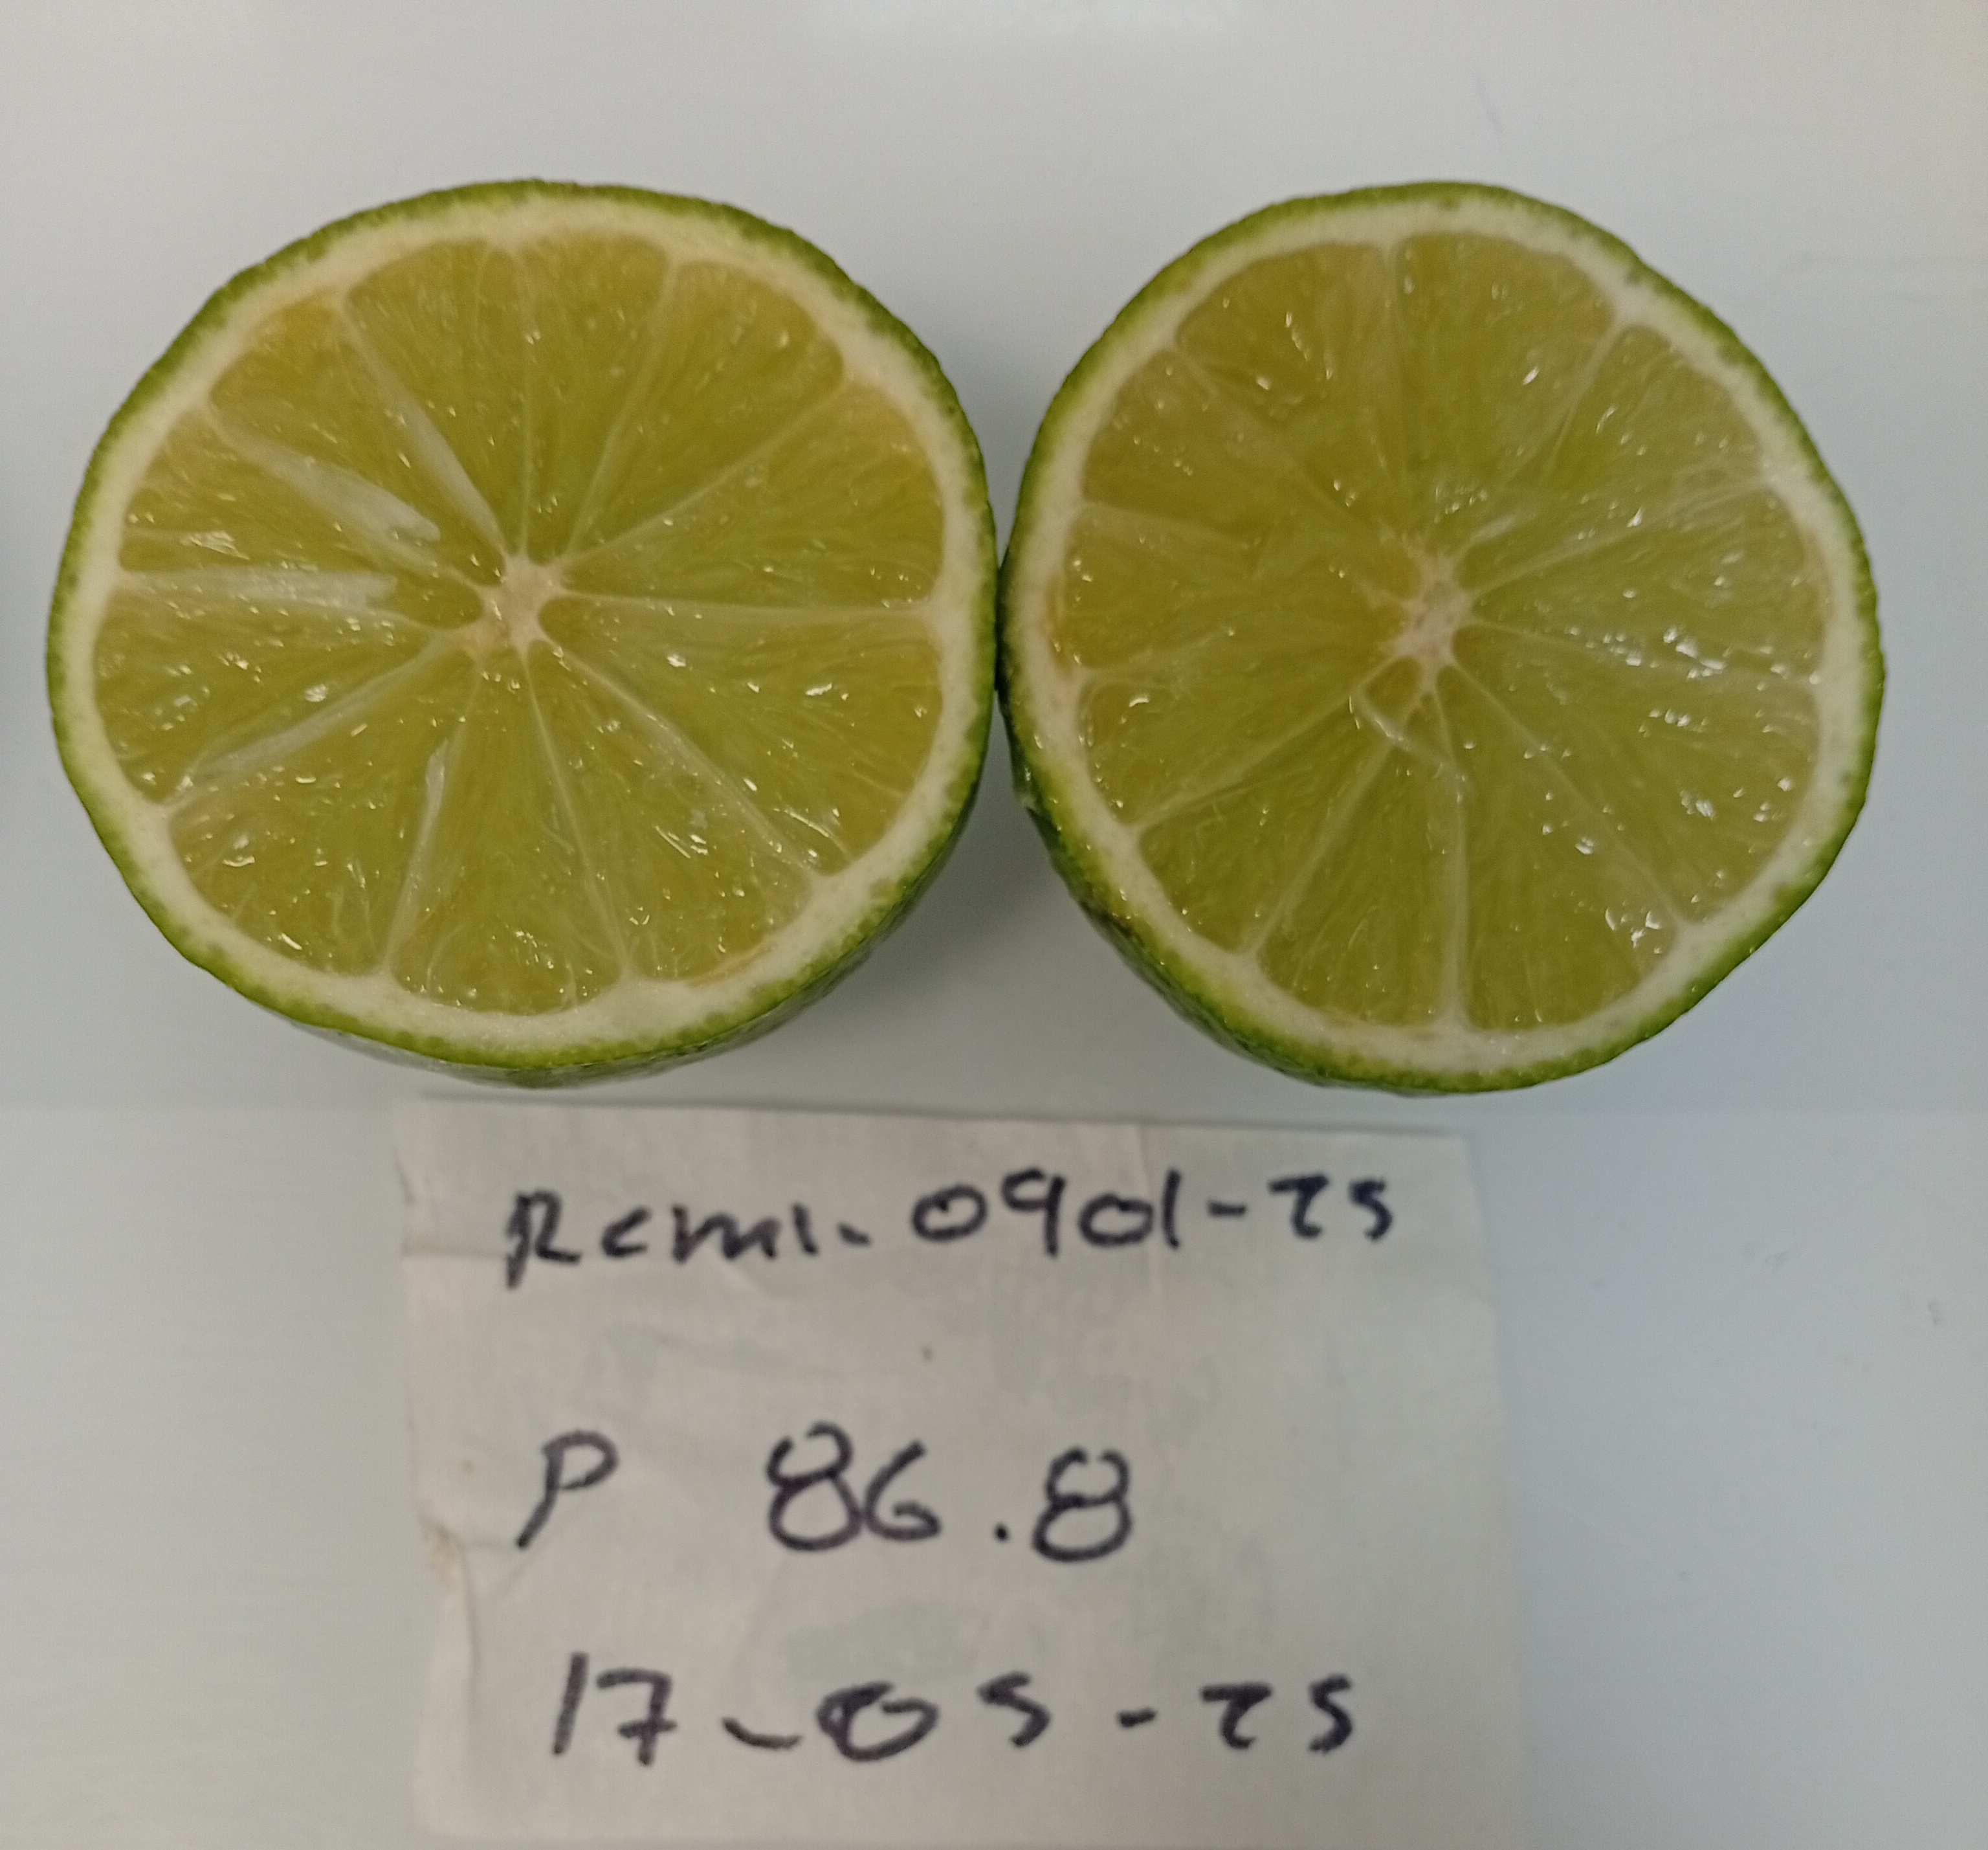 Rcml-0901-25
P 86.8
17-05-25